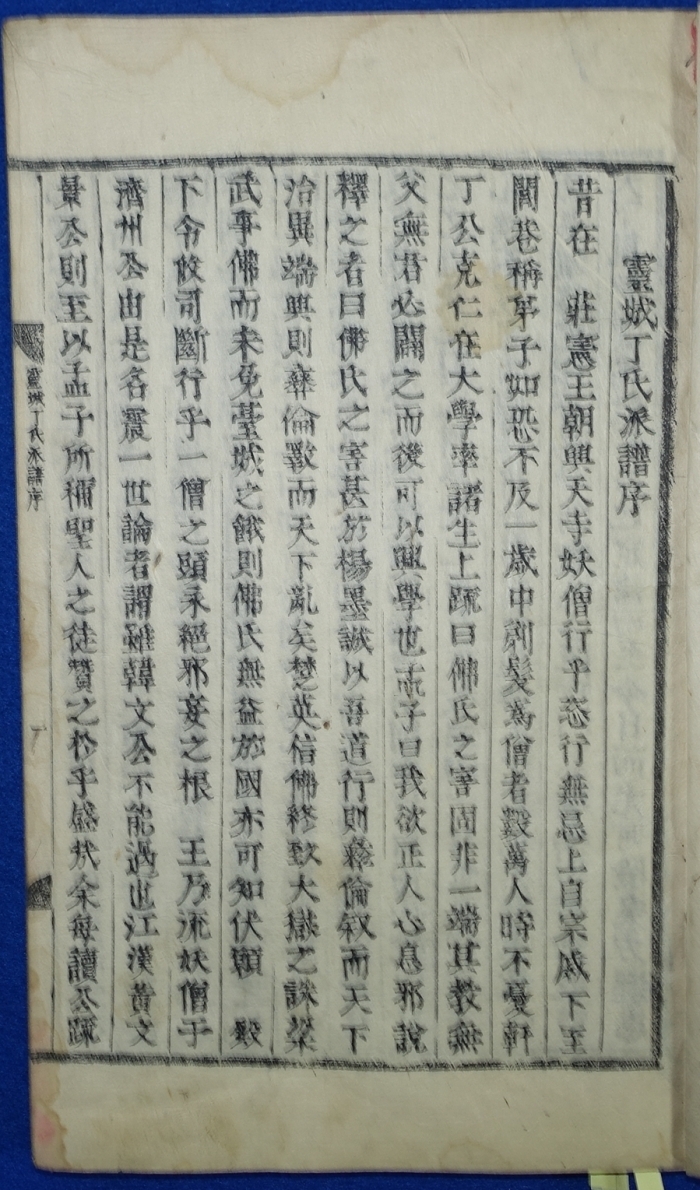 靈城丁氏派譜序
昔在 莊憲王朝興天寺妖僧行乎恣行無忌上自宗戚下至
閭巷稱弟子如恐不及一歲中削髮爲僧者數萬人時不憂軒
丁公克仁在大學率諸生上疏曰佛氏之害固非一端其敎無
父無君必闢之而後可以興學也孟子曰我欲正人心息邪說
釋之者曰佛氏之害甚於楊墨誠以吾道行則彝倫敍而天下
治異端興則彝倫斁而天下亂矣楚英信佛終致大獄之誅梁
武事佛而未免臺城之餓則佛氏無益於國亦可知伏願 殿
下令攸司斷行乎一僧之頭永絕邪妄之根 王乃流妖僧于
濟州公由是名震一世論者謂雖韓文公不能過也江漢黃文
景公則至以孟子所稱聖人之徒贊之於乎盛哉余每讀公疏
靈城丁氏派譜序